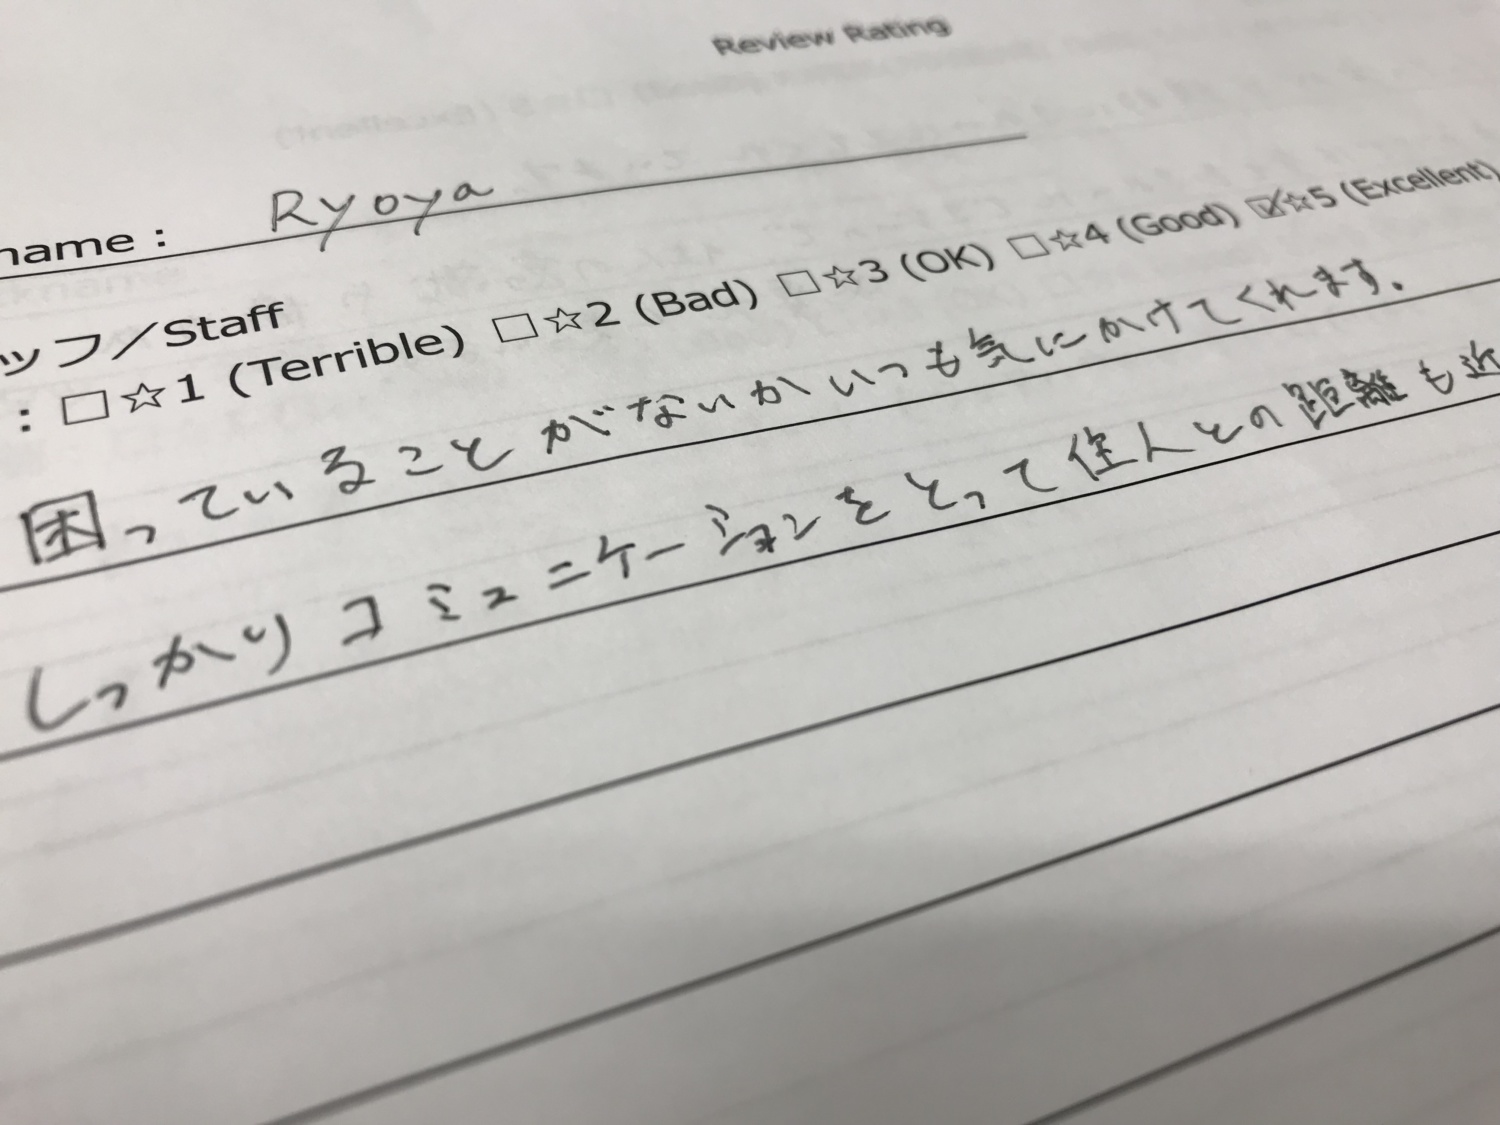 Review Rating
name : Ryoya
ッフ／Staff
: □☆1 (Terrible) □☆2 (Bad) □☆3 (OK) □☆4 (Good) ☑☆5 (Excellent)
困っていることがないかいつも気にかけてくれます.
しっかりコミュニケーションをとって住人との距離も近